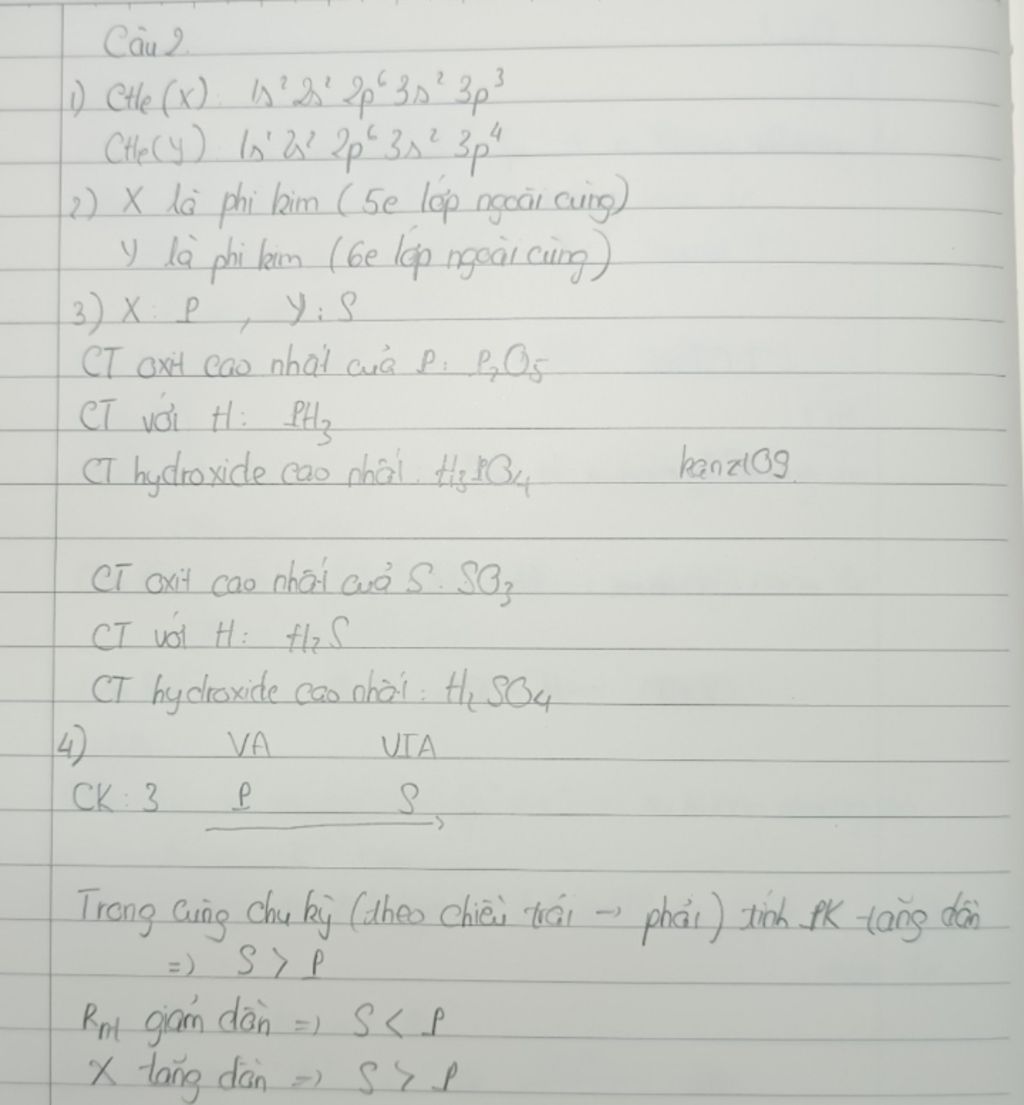 Câu 2
1) CHe (X): 1s² 2s² 2p⁶ 3s² 3p³
CHe (Y): 1s² 2s² 2p⁶ 3s² 3p⁴
2) X là phi kim (5e lớp ngoài cùng)
Y là phi kim (6e lớp ngoài cùng)
3) X: P , Y: S
CT oxit cao nhất của P: P₂O₅
CT với H: PH₃
CT hydroxide cao nhất: H₃PO₄ hanz109
CT oxit cao nhất của S: SO₃
CT với H: H₂S
CT hydroxide cao nhất: H₂SO₄
4) VA VIA
CK: 3 P S
Trong cùng chu kỳ (theo chiều trái → phải) tính PK tăng dần
=> S > P
Rnt giảm dần => S < P
X tăng dần => S > P